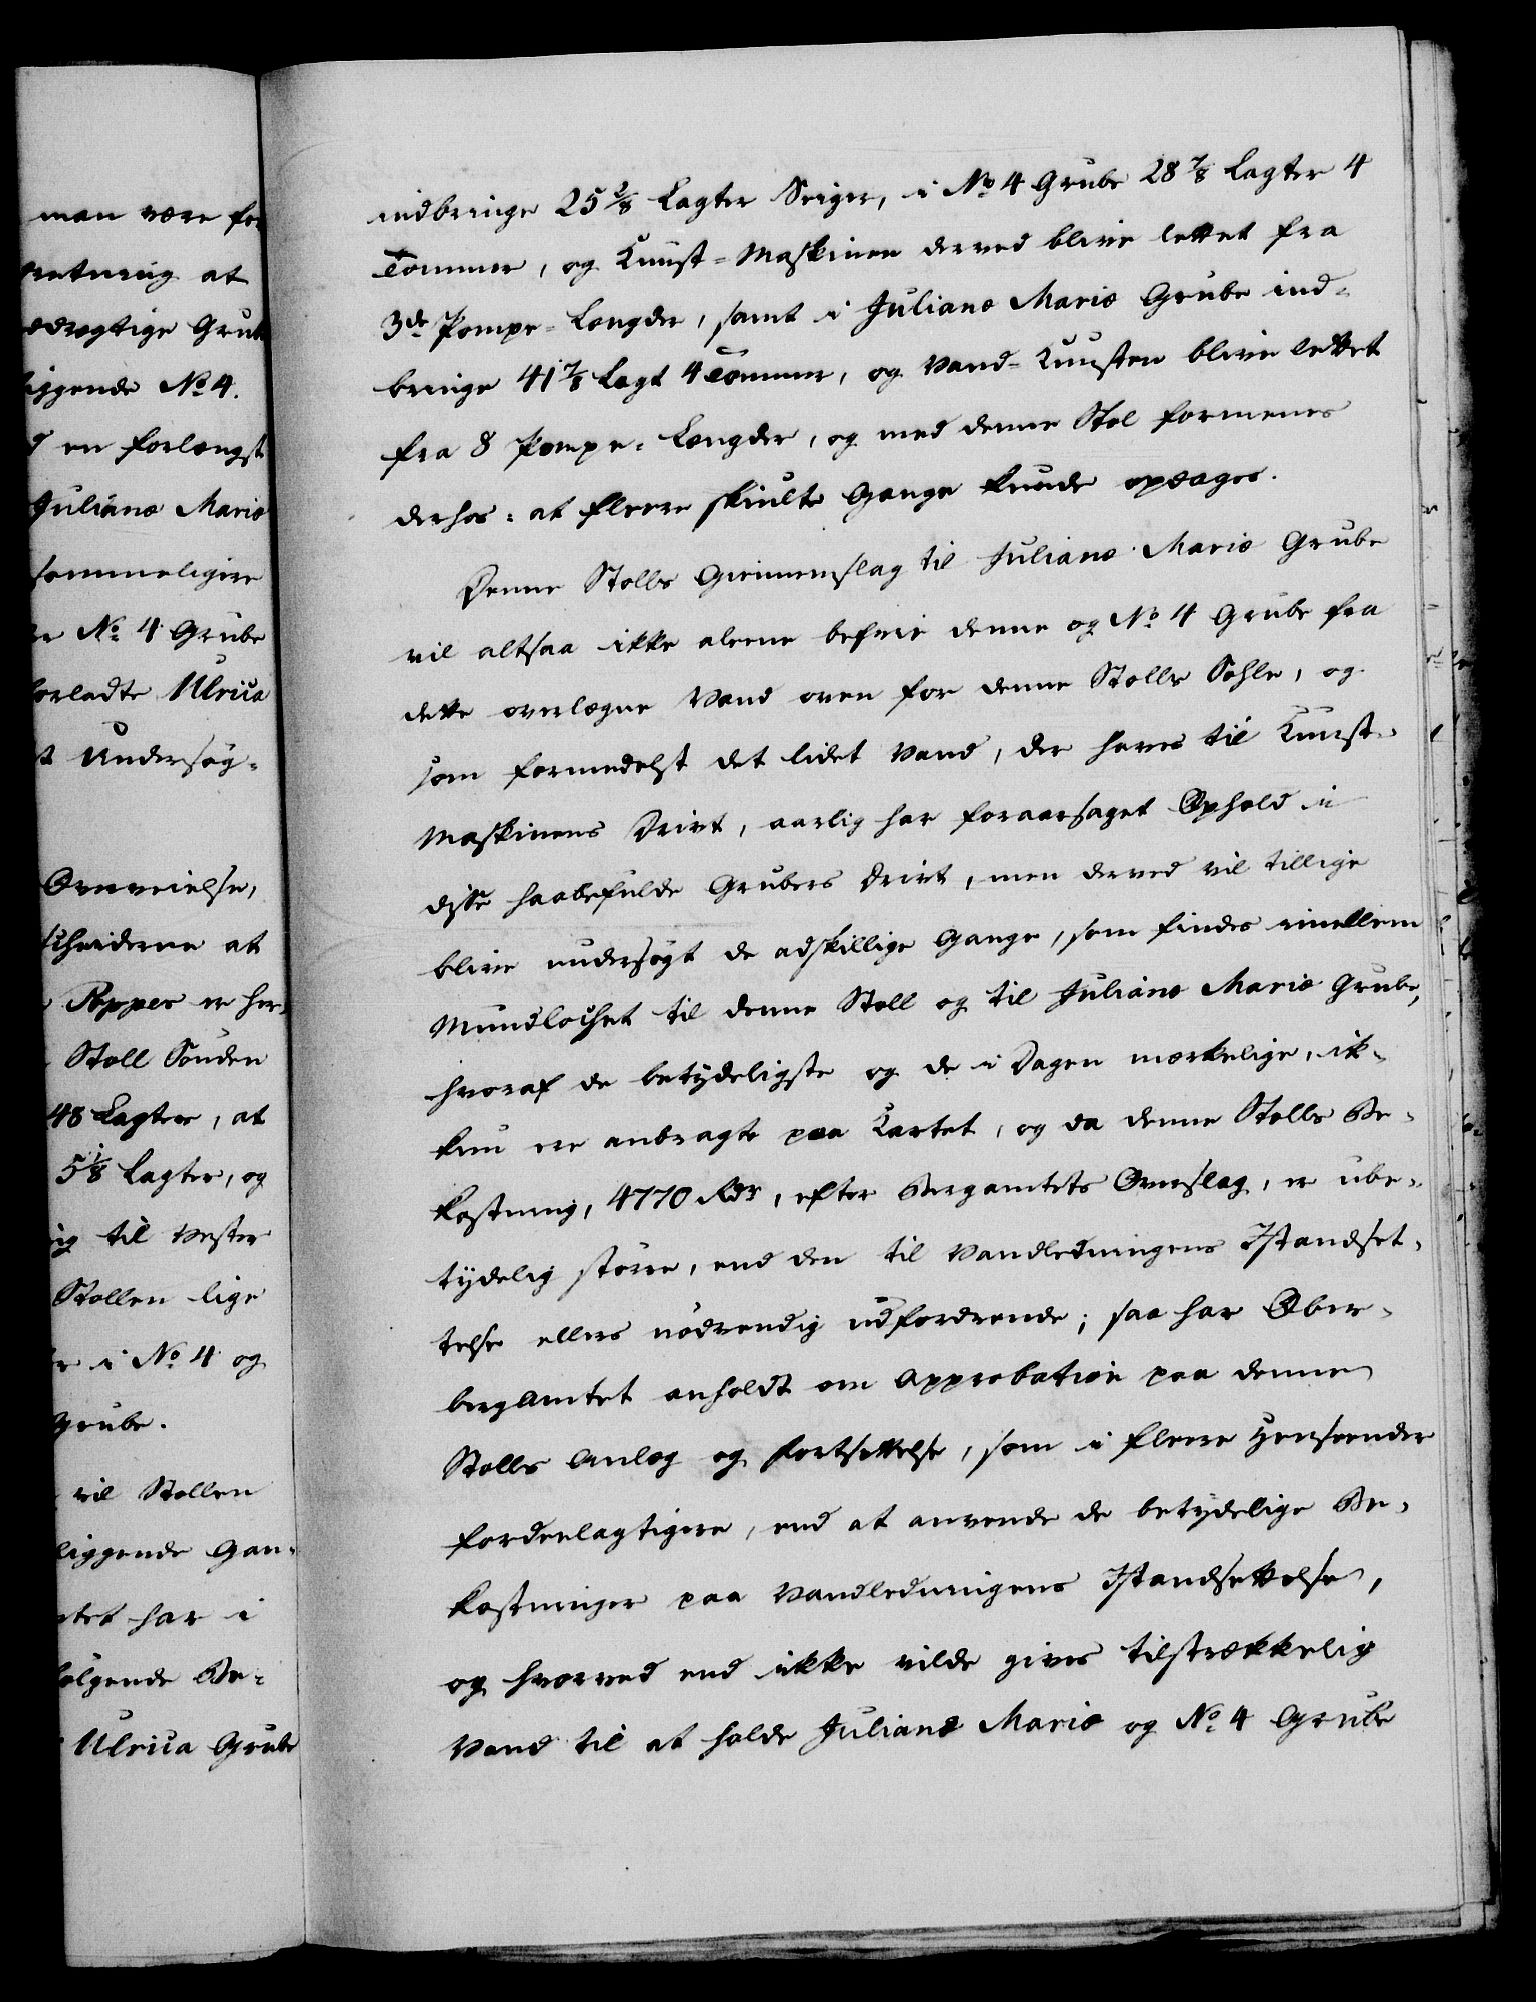 man være for
retning at
drægtige Grub
iggende No 4.
d en forlængst
Juliane Marie
sommeligere
No 4 Grube
forladte Ulrica
Undersøg-
Overveielse,
scheiderne at
Popper er her-
Stoll Sönden
48 Lagter, at
5 1/8 Lagter, og
til Vester
Stollen lige
i No 4 og
Grube.
vil Stollen
liggende Gan-
tet har i
følgende Be-
Ulrica Grube
indbringe 25 2/8 Lagter Seiger, i No 4 Grube 28 7/8 Lagter 4
Tommer, og Kunst-Maskinen derved blive lettet fra
3de Pompe-Længder, samt i Juliane Marie Grube ind-
bringe 41 7/8 Lagt 4 Tommer, og Vand-Kunsten blive lettet
fra 8 Pompe-Længder, og med denne Stol formenes
derhos: at fleere skiulte Gange kunde opdages.
Denne Stolls Giennemslag til Juliane Marie Grube
vil altsaa ikke aleene befrie denne og No 4 Grube fra
dette overlægne Vand oven for denne Stolls Sohle, og
som formedelst det lidet Vand, der haves til Kunst-
Maskinens Drivt, aarlig har foraarsaget Ophold i
disse haabefulde Grubers Drivt, men derved vil tillige
blive undersøgt de adskillige Gange, som findes imellem
Mundlochet til denne Stoll og til Juliane Marie Grube,
hvoraf de betydeligste og de i Dagen mærkelige, ik-
kun ere anbragte paa Kartet, og da denne Stolls Be-
kostning, 4770 Rdr, efter Bergamtets Overslag, er ube-
tydelig større, end den til Vandledningens Istandset-
telse ellers nødvendig udfordrende; saa har Ober-
bergAmtet anholdt om Approbation paa denne
Stolls Anlæg og Fortsettelse, som i fleere Henseender
fordeelagtigere, end at anvende de betydelige Be-
kostninger paa Vandledningens Istandsettelse,
og hvorved end ikke vilde gives tilstrækkelig
Vand til at holde Juliane Marie og No 4 Grube